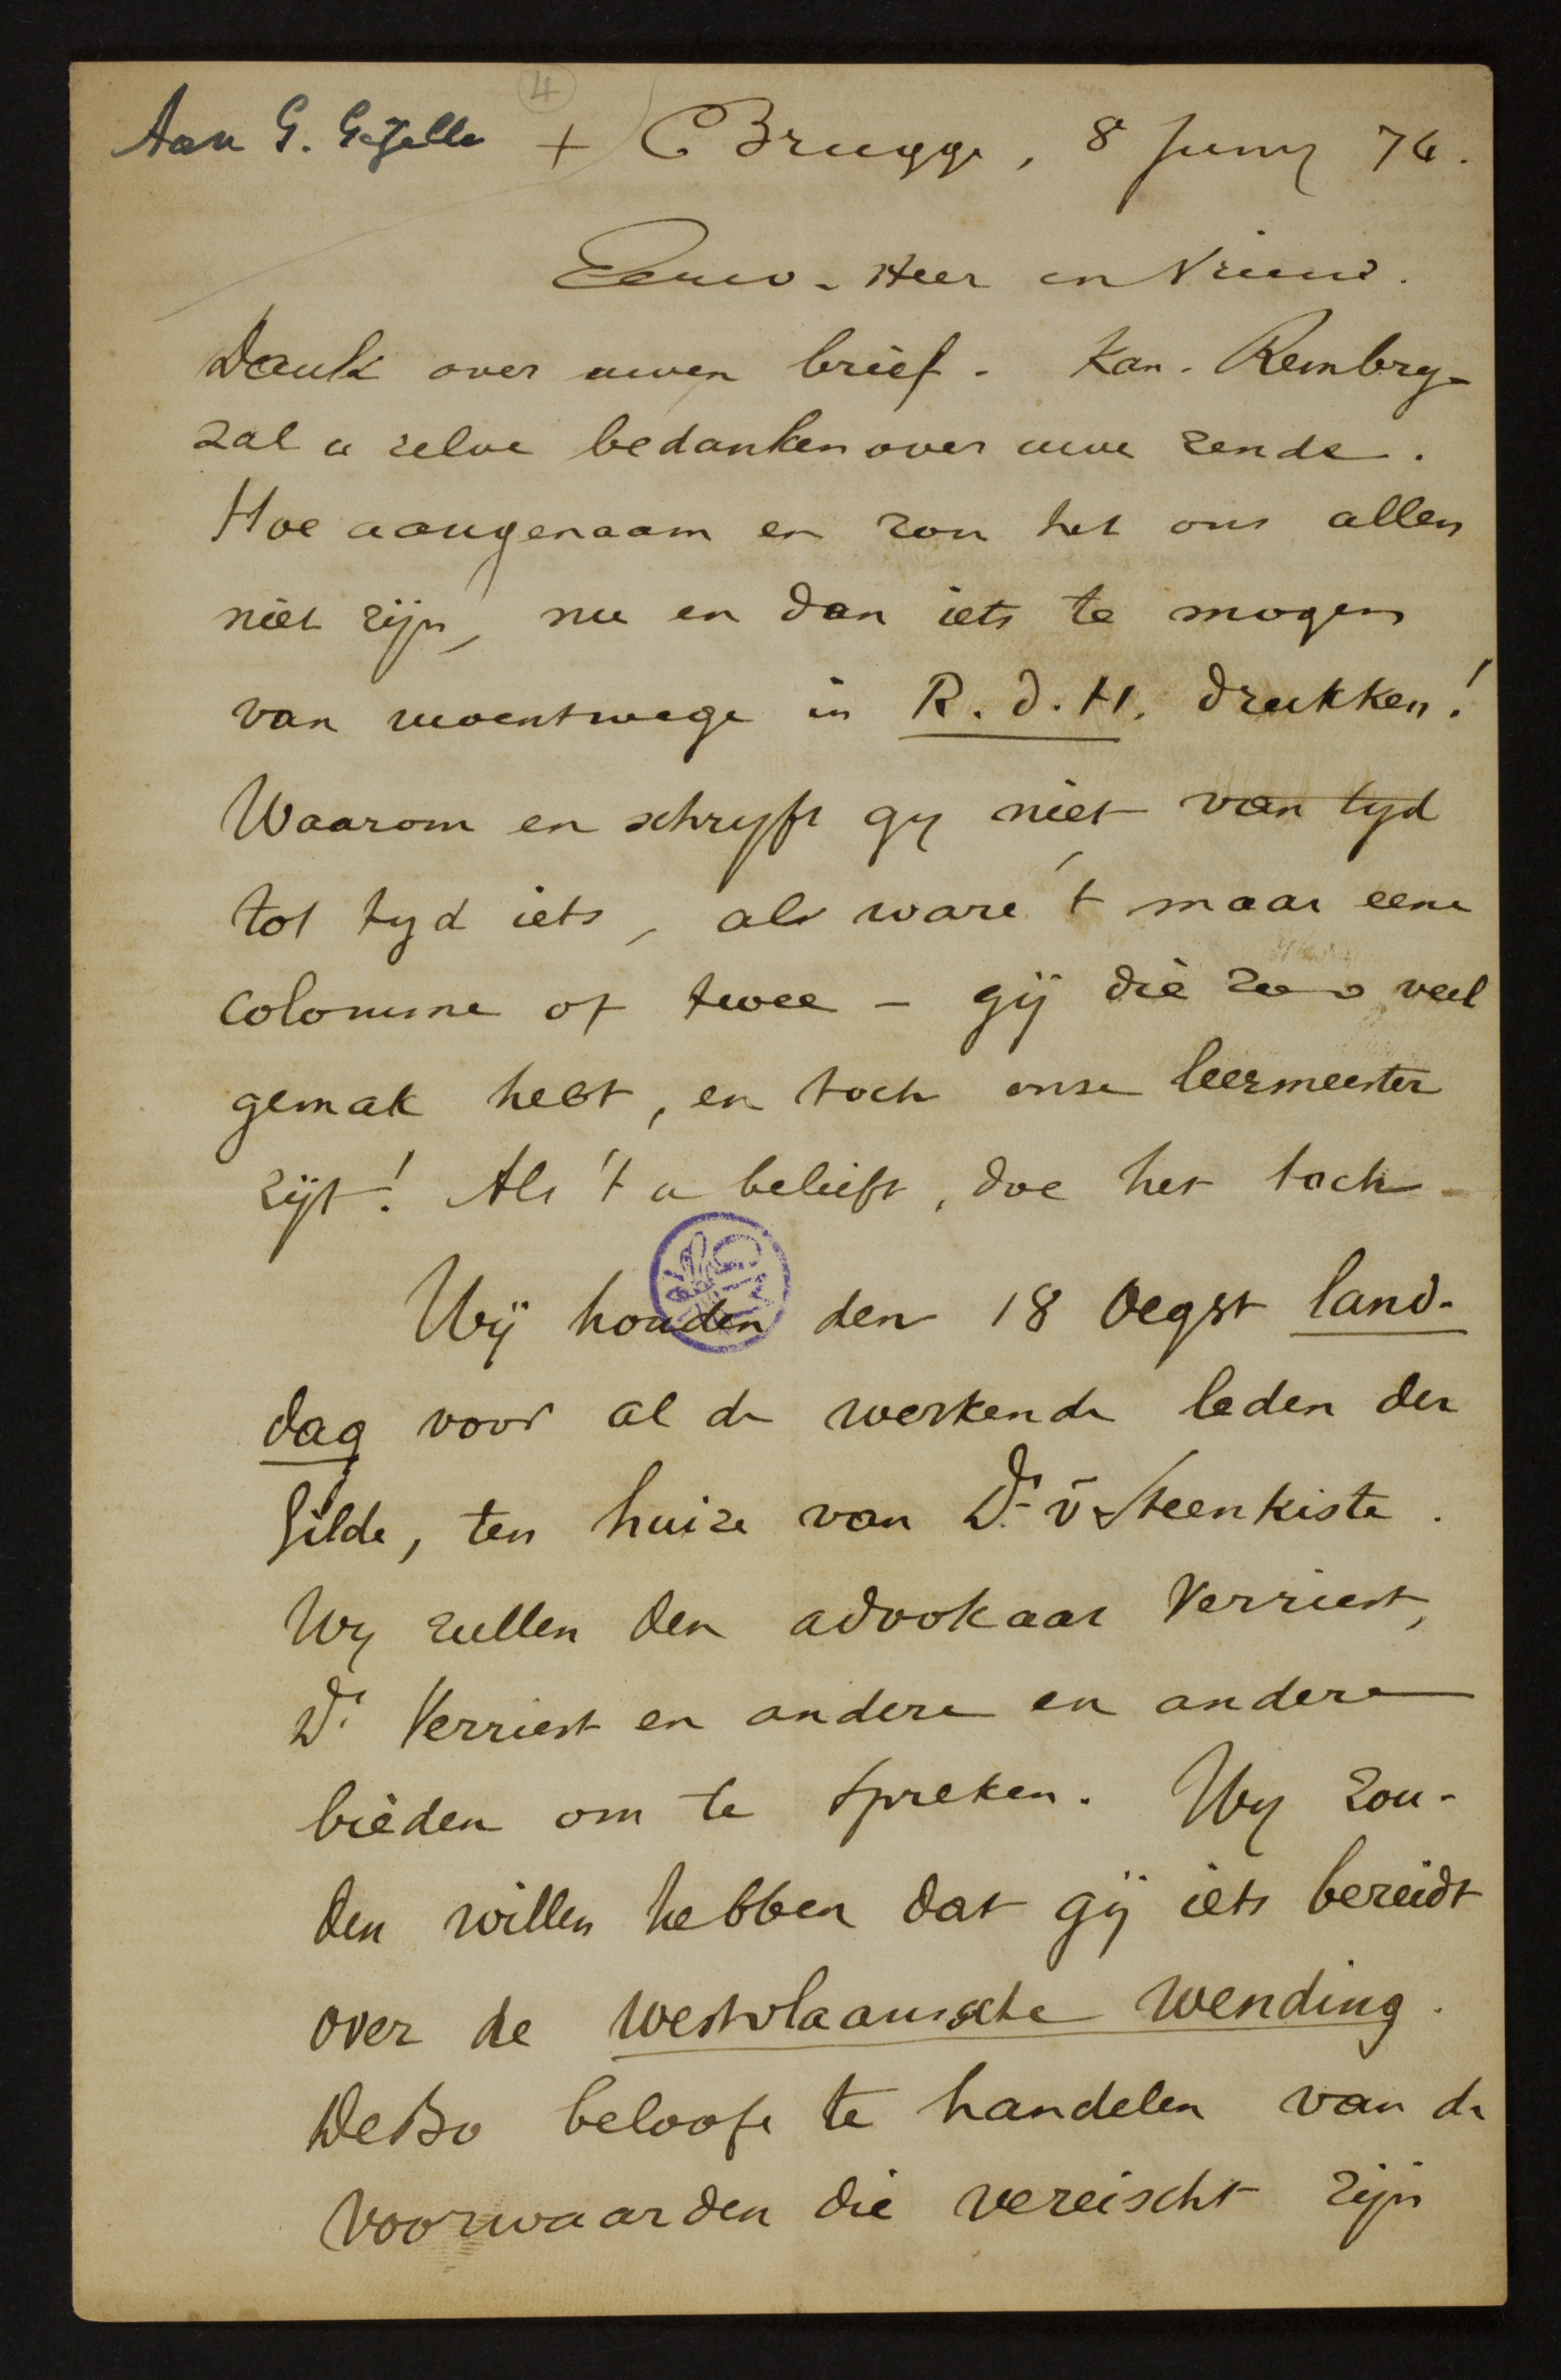 4
Aan G. Gezelle + Brugge, 8 Juny 74.
Eerw. Heer en Vriend.
Dank over uwen brief. Kan. Rembry
zal u zelve bedanken over uwe zende.
Hoe aangenaam en zou het ons allen
niet zijn, nu en dan iets te mogen
van uwentwege in R. d. H. drukken!
Waarom en schryft gy niet van tyd
tot tyd iets, als ware 't maar eene
colomme of twee - gij die zoo veel
gemak hebt, en toch onze leermeester
zijt! Als 't u belieft, doe het toch
Wij houden den 18 Oegst land-
dag voor al de werkende leden der
Gilde, ten huize van Dr. v Steenkiste.
Wy zullen den advokaat Verriest,
Dr. Verriest en andere en andere
bieden om te spreken. Wy zou-
den willen hebben dat gij iets bereidt
over de westvlaamsche wending.
DeBo belooft te handelen van de
voorwaarden die vereischt zijn